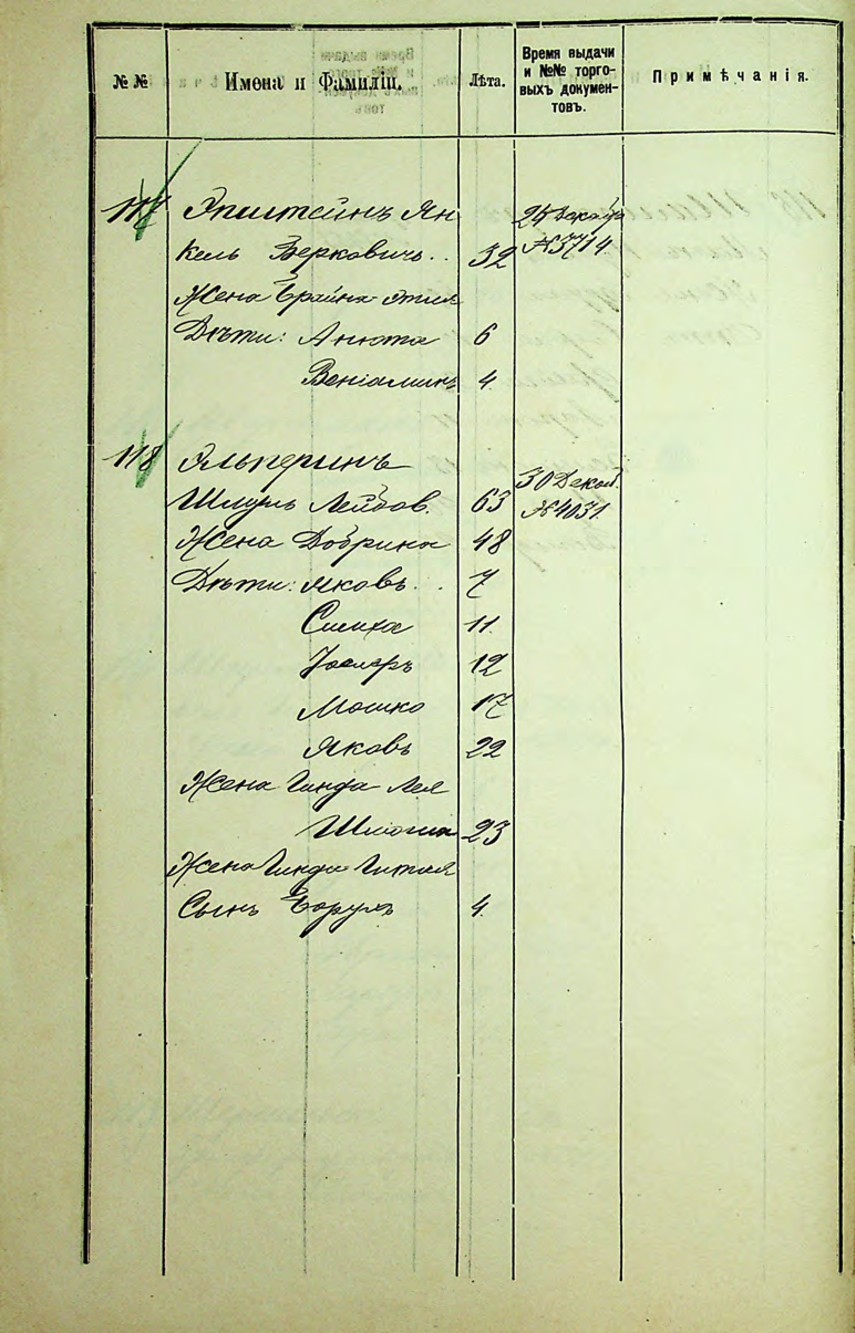 № №
Имена и Фамиліи.
Лѣта.
Время выдачи
и №№ торго-
выхъ докумен-
товъ.
Примѣчанія.
117 Эпштейнъ Ян
25 Декабр
кель Берковичъ .. 32
№ 3714.
Жена Брайна-Этля
Дѣти: Анюта 6
Веніаминъ 4.
118 Альперинъ
30 Декаб.
Шмуль Лейбов. 63
№ 4031.
Жена Добрина 48
Дѣти: Яковъ .. 7
Симха 11.
12
Мошко 17
Яковъ 22
Жена Гинда-Лея
23
Жена Гинда-Гитля
Сынъ Борухъ 4.